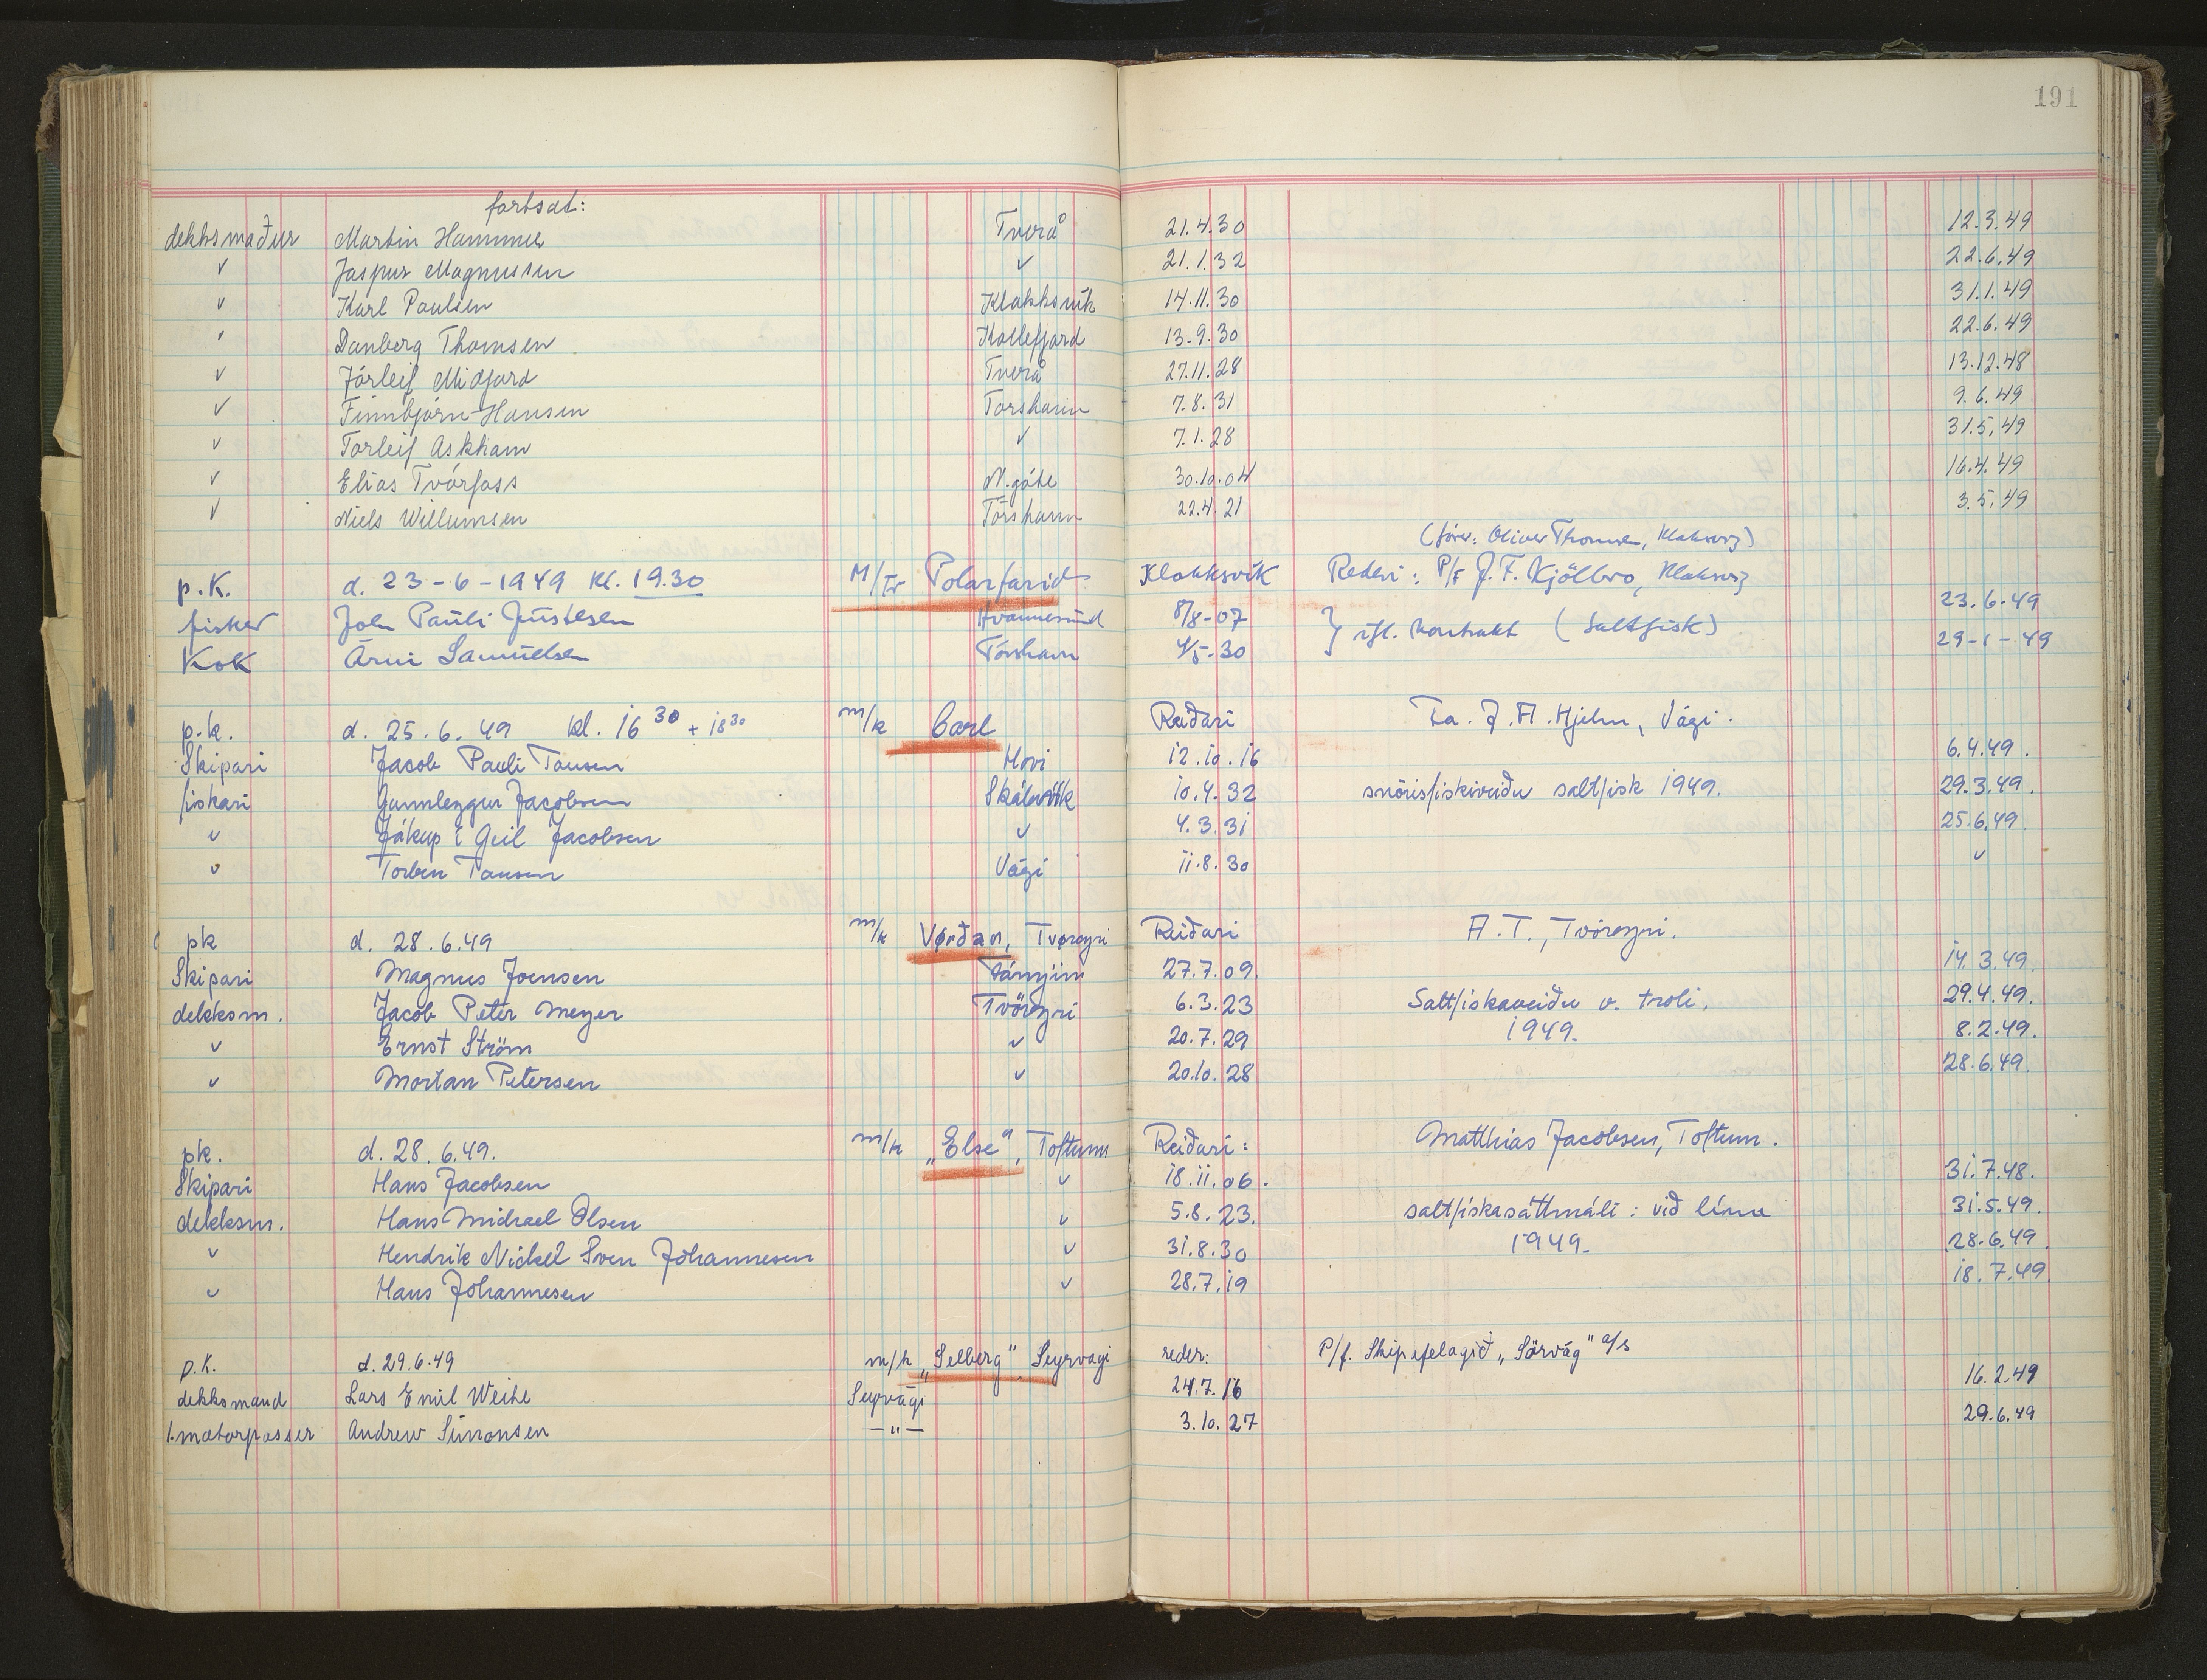 191
fortsat:
dekksmaður Martin Hammer Tverå 21.4.30 12.3.49
v Jaspur Magnussen v 21.1.32 22.6.49
v Karl Poulsen Klakksvík 14.11.30 31.1.49
v Danberg Thomsen Kollefjord 13.9.30 22.6.49
v Jórleif Midfjord Tverå 27.11.28 13.12.48
v Finnbjörn Hansen Torshavn 7.8.31 9.6.49
v Torleif Askham v 7.1.28 31.5.49
v Elias Tvørfoss N.göte 30.10.04 16.4.49
v Niels Willumsen Tórshavn 22.4.21 3.5.49
(förer: Oliver Thomsen, Klaksvig)
p.K. d. 23-6-1949 Kl. 19.30 M/Tr Polarfarid Klakksvík Rederi: P/F J. F. Kjölbro, Klaksvig
fisker John Pauli Justesen Hvannesund 8/8-07 } ifl. kontrakt (Saltfisk) 23.6.49
Kok Árni Samuelsen Tórshavn 4/5-30 29-1-49
p.k. d. 25.6.49 kl. 16 30 + 18 30 m/k Carl Reiðari Fa. J. A. Hjelm, Vági.
Skipari Jacob Pauli Tausen Hovi 12.10.16 6.4.49.
fiskari Gunnleygur Jacobsen Skálavík 10.4.32 snörisfiskiveiðu saltfisk 1949. 29.3.49.
v Jákup E Geil Jacobsen v 4.3.31 25.6.49.
v Torben Tausen Vági 11.8.30 v
pk d. 28.6.49 m/k Vørðan, Tvøroyri Reiðari A. T., Tvöroyri.
Skipari Magnus Joensen Fámjin 27.7.09. 14.3.49.
dekksm. Jacob Peter Meyer Tvöroyri 6.3.23 Saltfiskaveiðu v. troli, 29.4.49.
v Ernst Ström v 20.7.29 1949. 8.2.49.
v Mortan Petersen v 20.10.28 28.6.49.
pk. d. 28.6.49. m/k „Else", Toftum Reiðari: Matthias Jacobsen, Toftum.
Skipari Hans Jacobsen v 18.11.06. 31.7.48.
dekksm. Hans Michael Olsen v 5.8.23. saltfiskasáttmáli: við línu 31.5.49.
v Hendrik Nickel Sven Johannesen v 31.8.30 1949. 28.6.49.
v Hans Johannesen v 28.7.19 18.7.49
p.K. d. 29.6.49 m/k „Selberg" Seyrvagi reder: P/f. Skipafelagið „Sörvåg" a/s
dekksmand Lars Emil Weihe Seyrvági 24.7.16 16.2.49
1.motorpasser Andrew Simonsen —"— 3.10.27 29.6.49